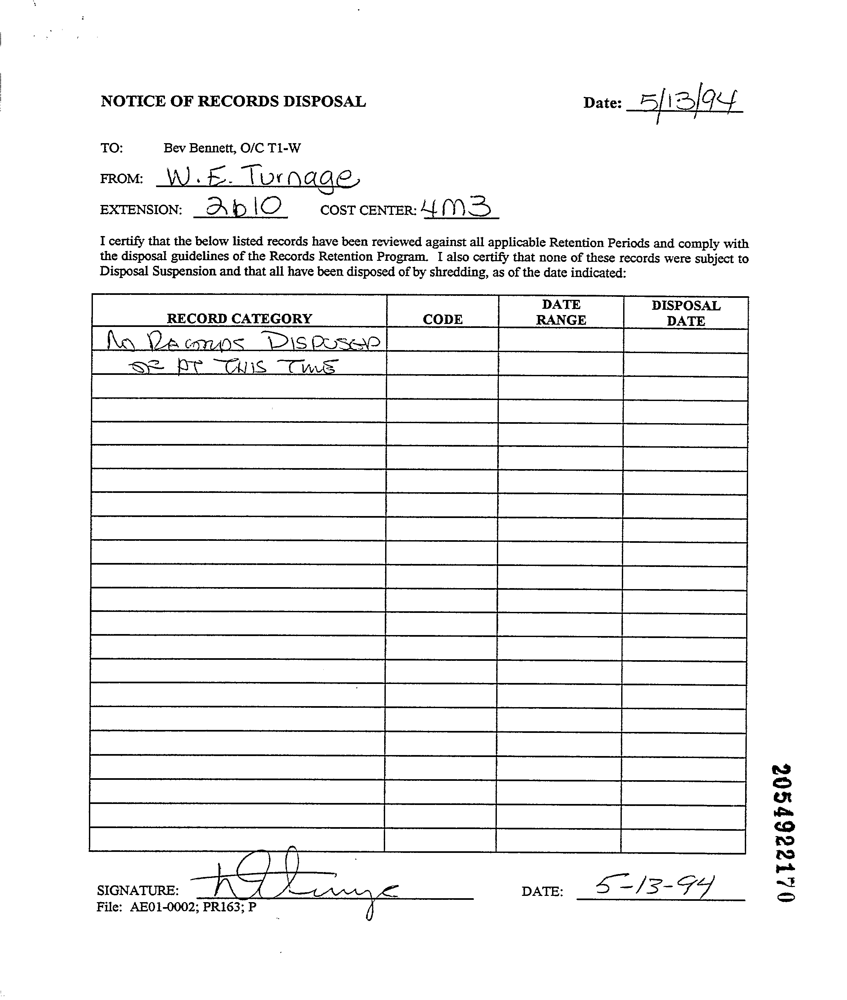 NOTICE OF RECORDS DISPOSAL
Date: 5/13/94
TO: Bev Bennett, O/C T1-W
FROM: W. E. Turnage
EXTENSION: 2610 COST CENTER: 4M3
I certify that the below listed records have been reviewed against all applicable Retention Periods and comply with
the disposal guidelines of the Records Retention Program. I also certify that none of these records were subject to
Disposal Suspension and that all have been disposed of by shredding, as of the date indicated:
RECORD CATEGORY CODE DATE RANGE DISPOSAL DATE
No RECORDS DISPOSED
OF AT THIS TIME
SIGNATURE: DATE: 5-13-94
File: AE01-0002; PR163; P
2054922170